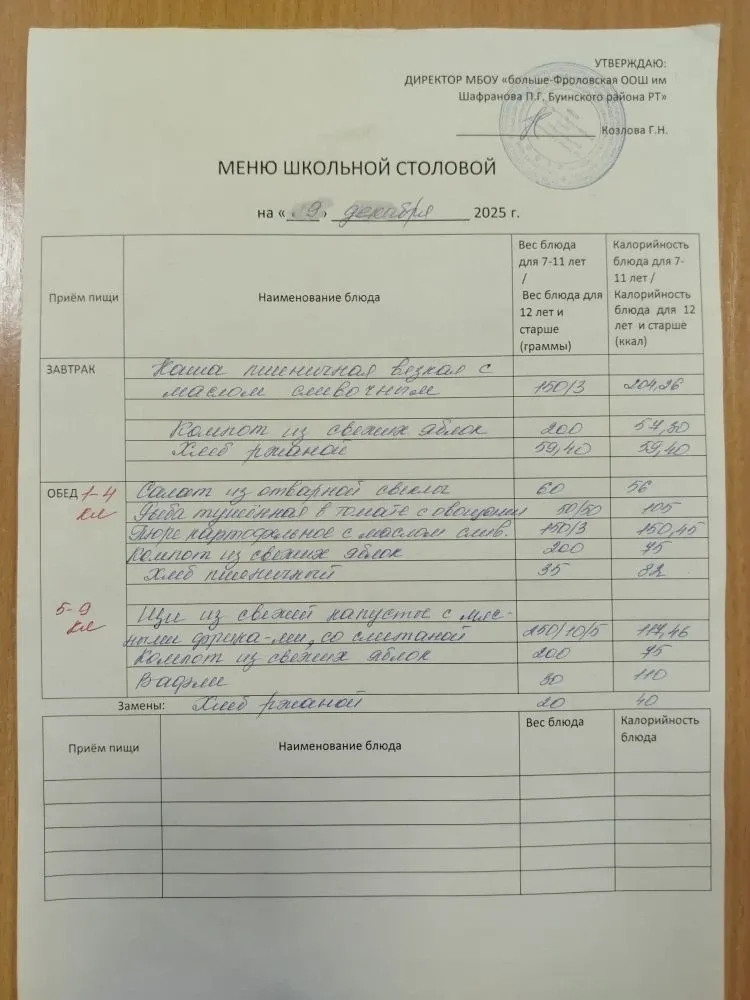 УТВЕРЖДАЮ:
ДИРЕКТОР МБОУ «больше-Фроловская ООШ им
Шафранова П.Г. Буинского района РТ»
Козлова Г.Н.
МЕНЮ ШКОЛЬНОЙ СТОЛОВОЙ
на « 9 » декабря 2025 г.
Приём пищи Наименование блюда Вес блюда для 7-11 лет / Вес блюда для 12 лет и старше (граммы) Калорийность блюда для 7-11 лет / Калорийность блюда для 12 лет и старше (ккал)
ЗАВТРАК Каша пшеничная вязкая с
маслом сливочным 150/3 204,26
Компот из свежих яблок 200 57,30
Хлеб ржаной 59,40 59,40
ОБЕД 1-4 Салат из отварной свеклы 60 56
кл Рыба тушённая в томате с овощами 50/50 105
Пюре картофельное с маслом слив. 150/3 150,45
Компот из свежих яблок 200 75
Хлеб пшеничный 35 82
5-9 Щи из свежей капусты с мяс-
кл ными фрика-ми, со сметаной 250/10/5 117,46
Компот из свежих яблок 200 75
Вафли 30 110
Замены: Хлеб ржаной 20 40
Приём пищи Наименование блюда Вес блюда Калорийность блюда